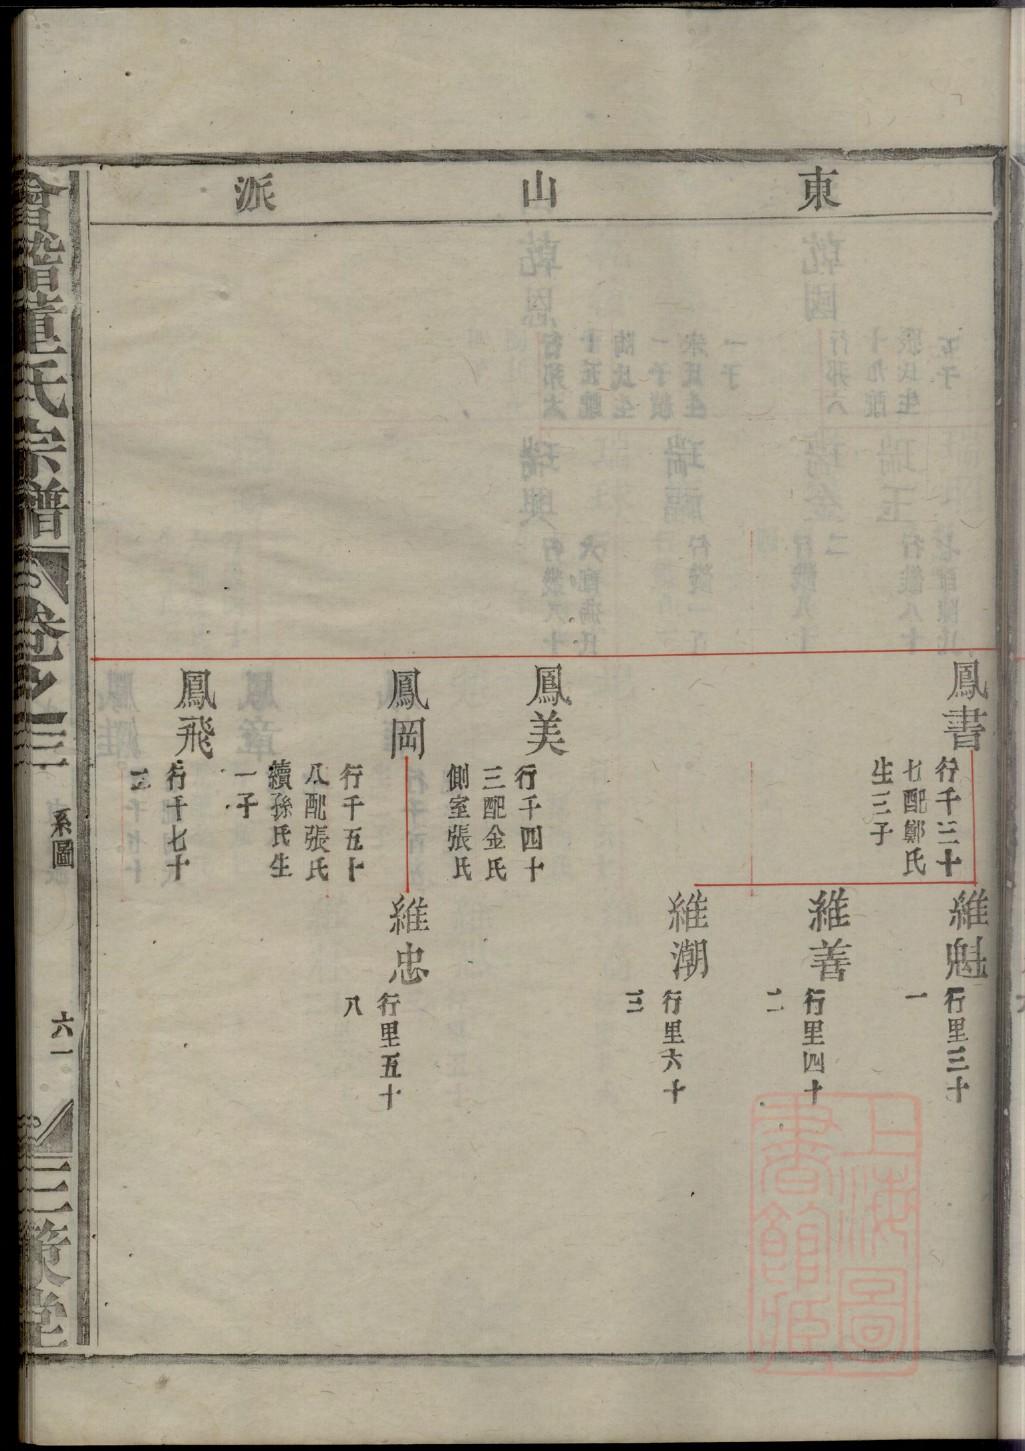 東山派
鳳書
行千三十
七配鄭氏
生三子
維魁
行里三十
一
維善
行里四十
二
維潮
行里六十
三
鳳美
行千四十
三配金氏
側室張氏
鳳岡
行千五十
八配張氏
續孫氏生
一子
維忠
行里五十
八
鳳飛
行千七十
會稽董氏宗譜
卷之三
系圖
六一
三策堂
上海圖書館藏